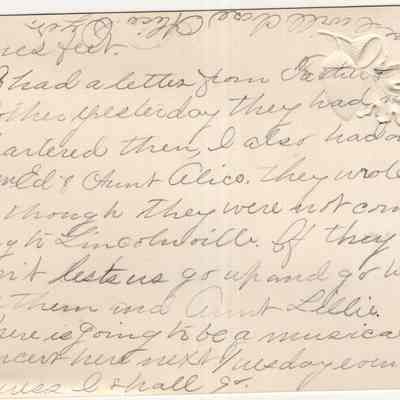 ones feet.
I had a letter from Father &
other yesterday they had n
artered then, I also had o
m Ed & Aunt Alice. they wrote
though they were not com
g to Lincolnville. If they
n't lets us go up and go w
them and Aunt Lillie.
here is going to be a musica
ncert here next Tuesday even
I shall go.